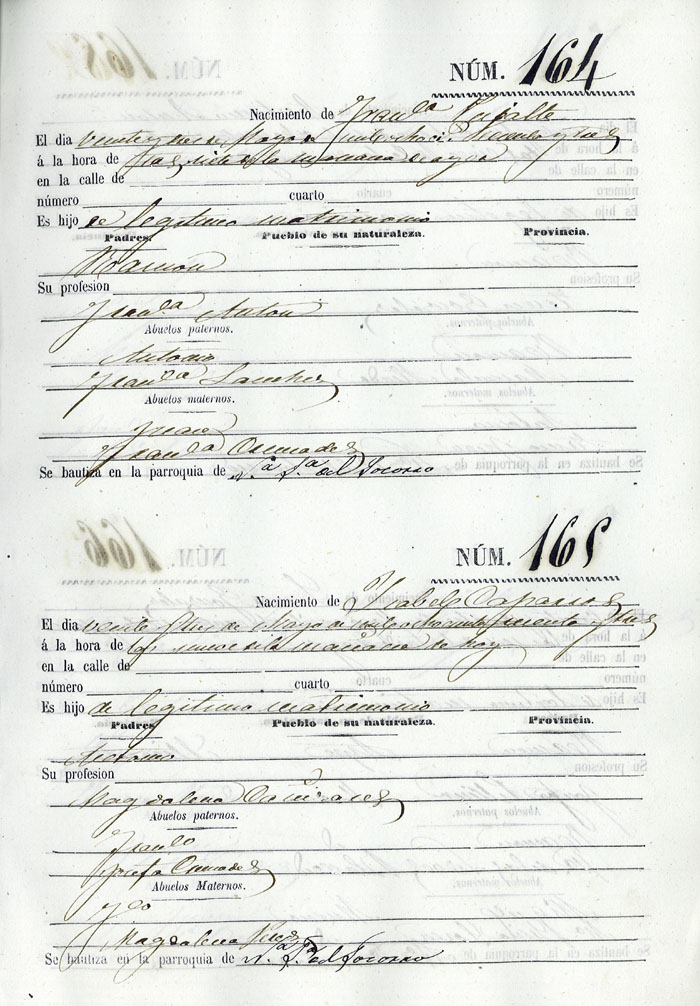 NÚM. 164
Nacimiento de Fran.ca
El dia veinte y tres de Mayo de mil ochoci. sesenta y tres
á la hora de las siete de la mañana de ayer
en la calle de
número cuarto
Es hijo de legitimo matrimonio
Padres. Pueblo de su naturaleza. Provincia.
Ramón
Su profesion
Fran.ca Anton
Abuelos paternos.
Antonio
Fran.ca Sanchez
Abuelos maternos.
Juan
Fran.ca
Se bautiza en la parroquia de N.ª S.ª del Socorro
NÚM. 165
Nacimiento de Ysabel Caparros
El dia veinte y tres de Mayo de mil ochocientos sesenta y tres
á la hora de las nueve de la mañana de hoy
en la calle de
número cuarto
Es hijo de legitimo matrimonio
Padres. Pueblo de su naturaleza. Provincia.
Antonio
Su profesion
Magdalena Cañizares
Abuelos paternos.
Fran.co
Josefa
Abuelos Maternos.
Magdalena
Se bautiza en la parroquia de N.ª S.ª del Socorro